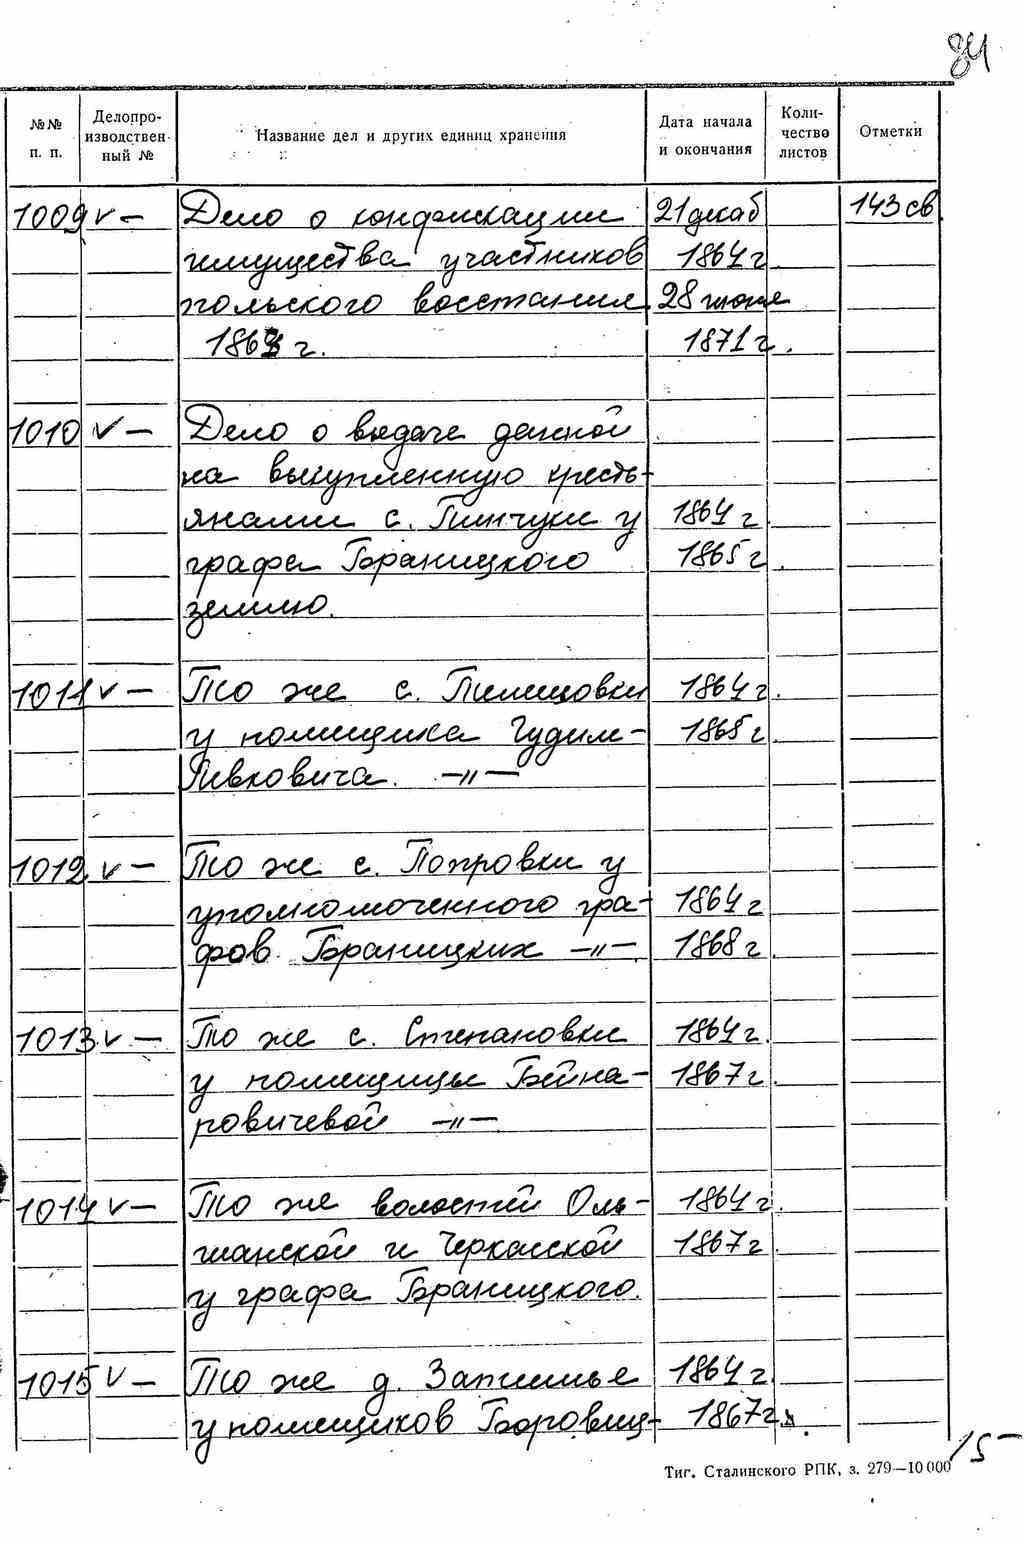 84
№№ п. п. Делопроизводствен-ный № Название дел и других единиц хранения Дата начала и окончания Количество листов Отметки
1009 v — Дело о конфискации 21 декаб 143 св.
имущества участников 1864 г.
польского восстания 28 июня
1863 г. 1871 г.
1010 v — Дело о выдаче данной
на выкупленную кресть-
янами с. Пинчуки у 1864 г.
графа Браницкого 1865 г.
землю.
1011 v — То же с. Пилиповки 1864 г.
у помещика Гудим- 1865 г.
Левковича. —"—
1012 v — То же с. Попровки у
уполномоченного гра- 1864 г.
фов Браницких —"— 1868 г.
1013 v — То же с. Степановки 1864 г.
у помещицы Бейна- 1867 г.
ровичевой —"—
1014 v — То же волостей Оль- 1864 г.
шанской и Черкасской 1867 г.
у графа Браницкого.
1015 v — То же д. Запилье 1864 г.
у помещиков Боровиц- 1867 г.
15 —
Тиг. Сталинского РПК, з. 279—10 000